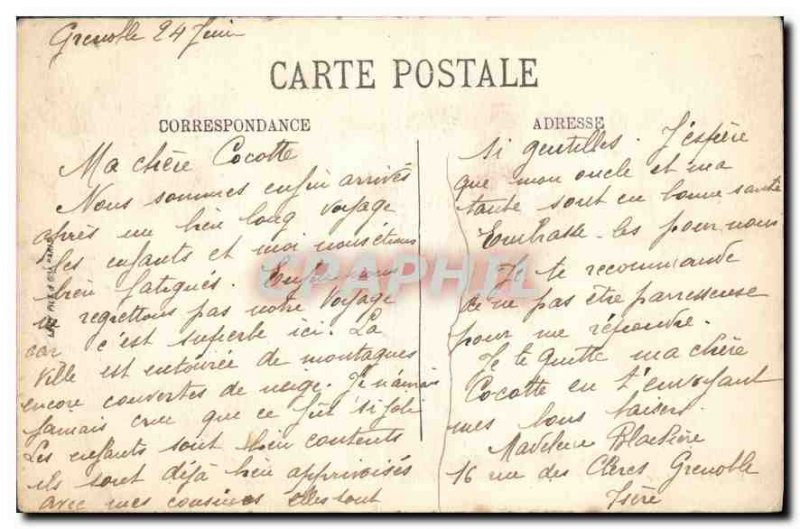 Grenoble 24 Juin
CARTE POSTALE
CORRESPONDANCE
Ma chère Cocotte
Nous sommes enfin arrivés
après un bien long voyage
les enfants et moi nous étions
bien fatigués. Enfin nous
ne regrettons pas notre voyage
car c'est superbe ici. La
ville est entourée de montagnes
encore couvertes de neige. Je n'aurais
jamais cru que ce fût si joli
Les enfants sont bien contents
ils sont déjà bien apprivoisés
avec mes cousines elles sont
ADRESSE
si gentilles. J'espère
que mon oncle et ma
tante sont en bonne santé
Embrasse-les pour nous
Je te recommande
de ne pas être paresseuse
pour me répondre.
Je te quitte ma chère
Cocotte en t'envoyant
mes bons baisers.
Madeleine
16 rue des Clercs Grenoble
Isère
CPAPHIL